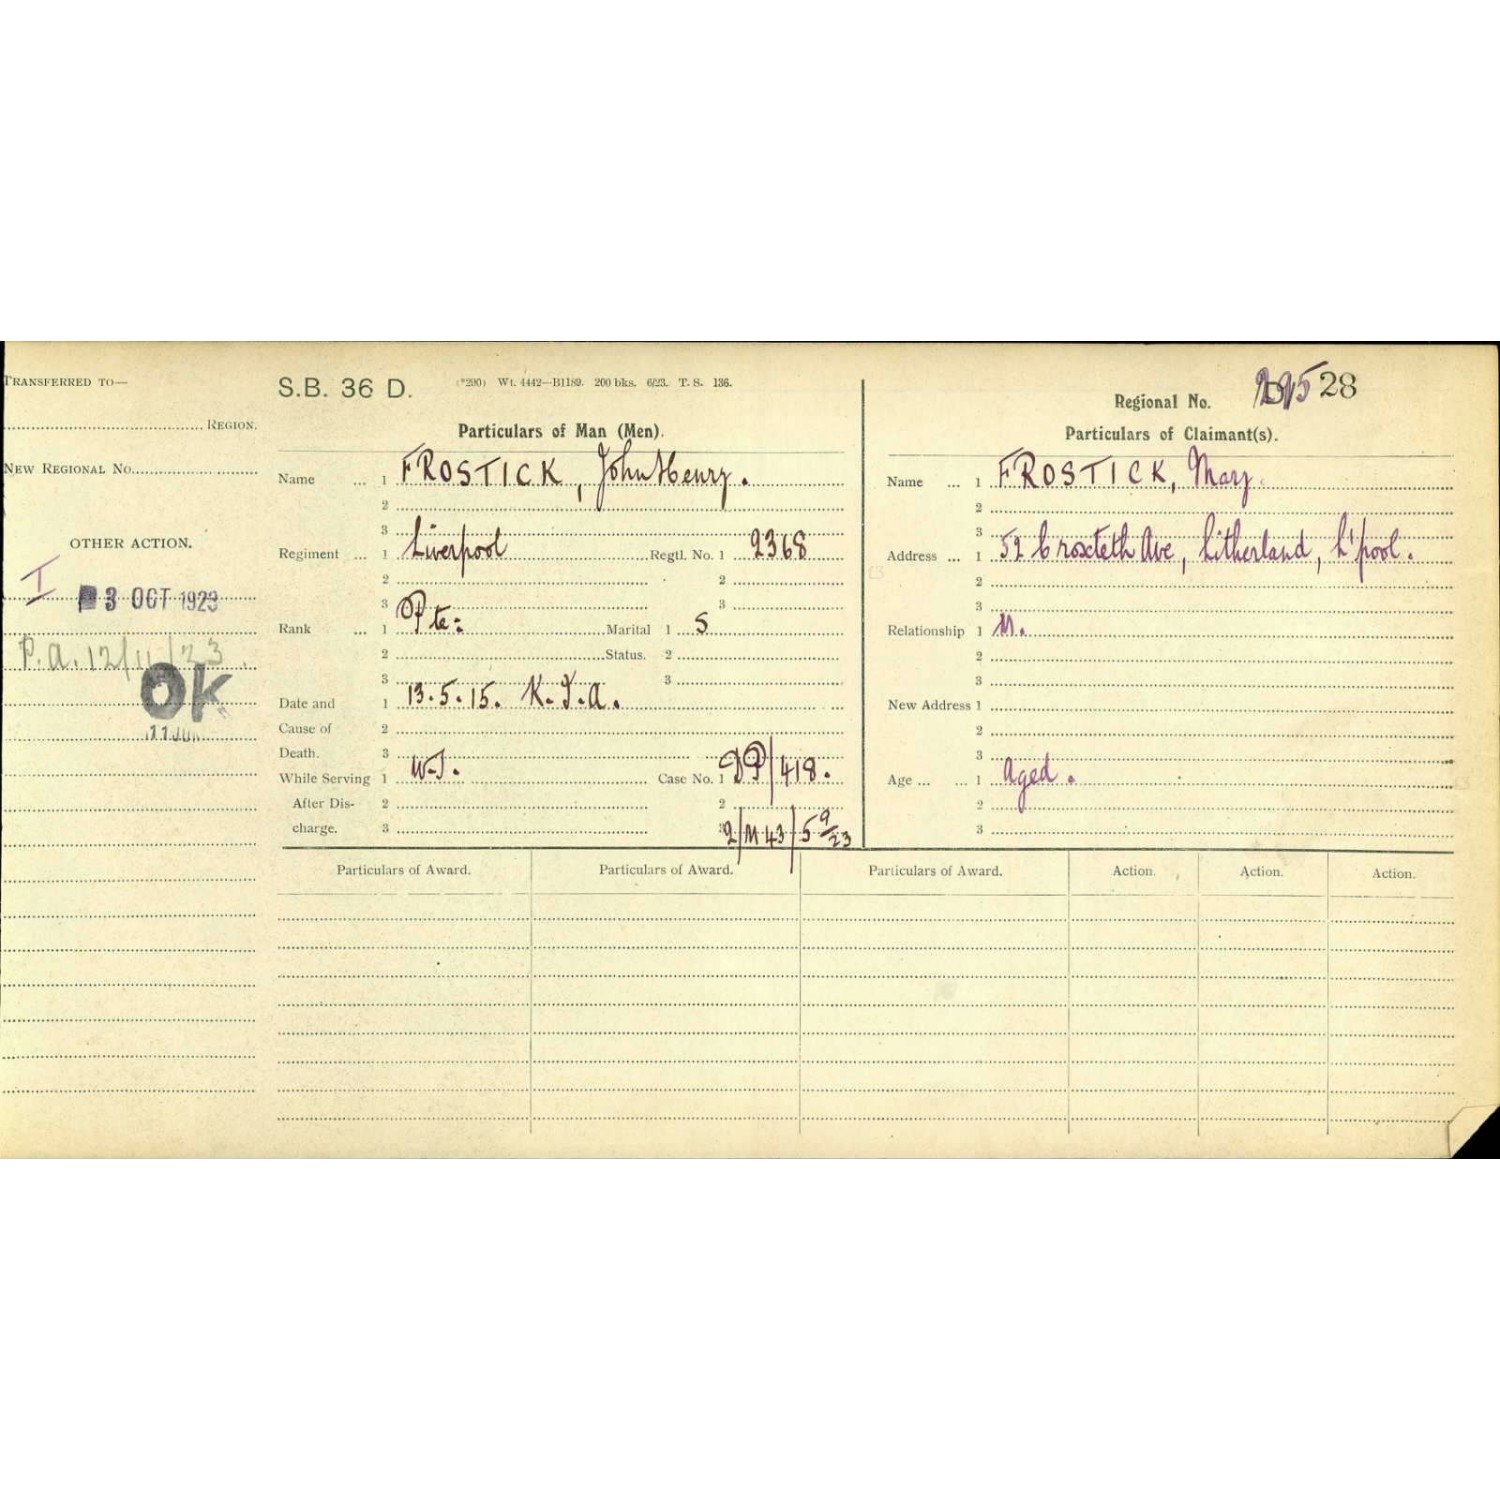 TRANSFERRED TO—
REGION.
NEW REGIONAL No.
OTHER ACTION.
I
3 OCT 1923
P.A. 12/11/23.
OK
S.B. 36 D.
(*290) Wt. 4442—B1189. 200 bks. 6/23. T. S. 136.
Particulars of Man (Men).
Name ... 1 FROSTICK, John Henry.
2
3
Regiment ... 1 Liverpool Regtl. No. 1 2368
2 2
3 3
Rank ... 1 Pte: Marital 1 S
2 Status. 2
3 3
Date and 1 13.5.15. K.I.A.
Cause of 2
Death. 3
While Serving 1 W.S. Case No. 1 DP/418.
After Dis- 2 2
charge. 3 3 2/M43/5 9/23
Regional No. 28
Particulars of Claimant(s).
Name ... 1 FROSTICK, Mary.
2
3
Address ... 1 52 Croxteth Ave, Litherland, L'pool.
2
3
Relationship 1 M.
2
3
New Address 1
2
3
Age ... ... 1 Aged.
2
3
Particulars of Award. Particulars of Award. Particulars of Award. Action. Action. Action.